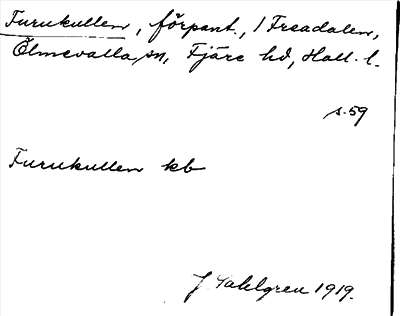 Furukullen, förpant., 1 Freadalen,
Ölmevalla sn, Fjäre hd, Hall. l.
s. 59
Furukullen kb
J Sahlgren 1919.